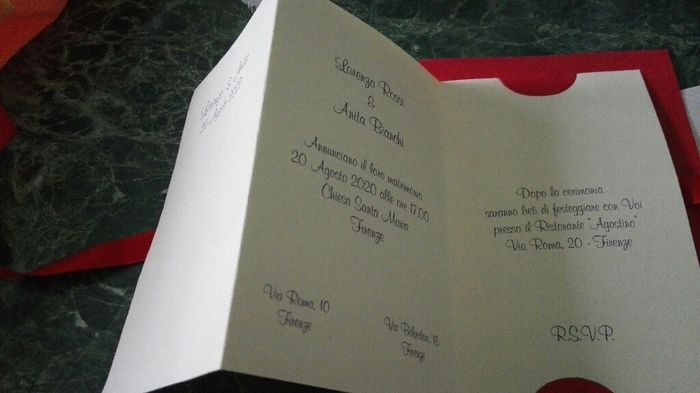 Lorenzo & Anita
20 Agosto 2020
Lorenzo Rossi
&
Anita Bianchi
Annunciano il loro matrimonio
20 Agosto 2020 alle ore 17.00
Chiesa Santa Maria
Firenze
Via Roma, 10
Firenze
Via Belvedere, 18
Firenze
Dopo la cerimonia
saranno lieti di festeggiare con Voi
presso il Ristorante "Agostino"
Via Roma, 20 - Firenze
R.S.V.P.